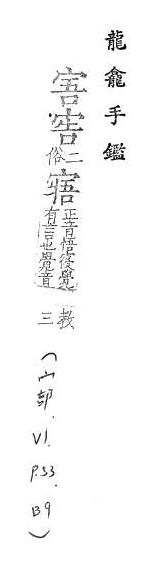 龍龕手鑑
二俗寤正音悟後覺有言也覺音教三
(宀部. V1. P.53. B9)